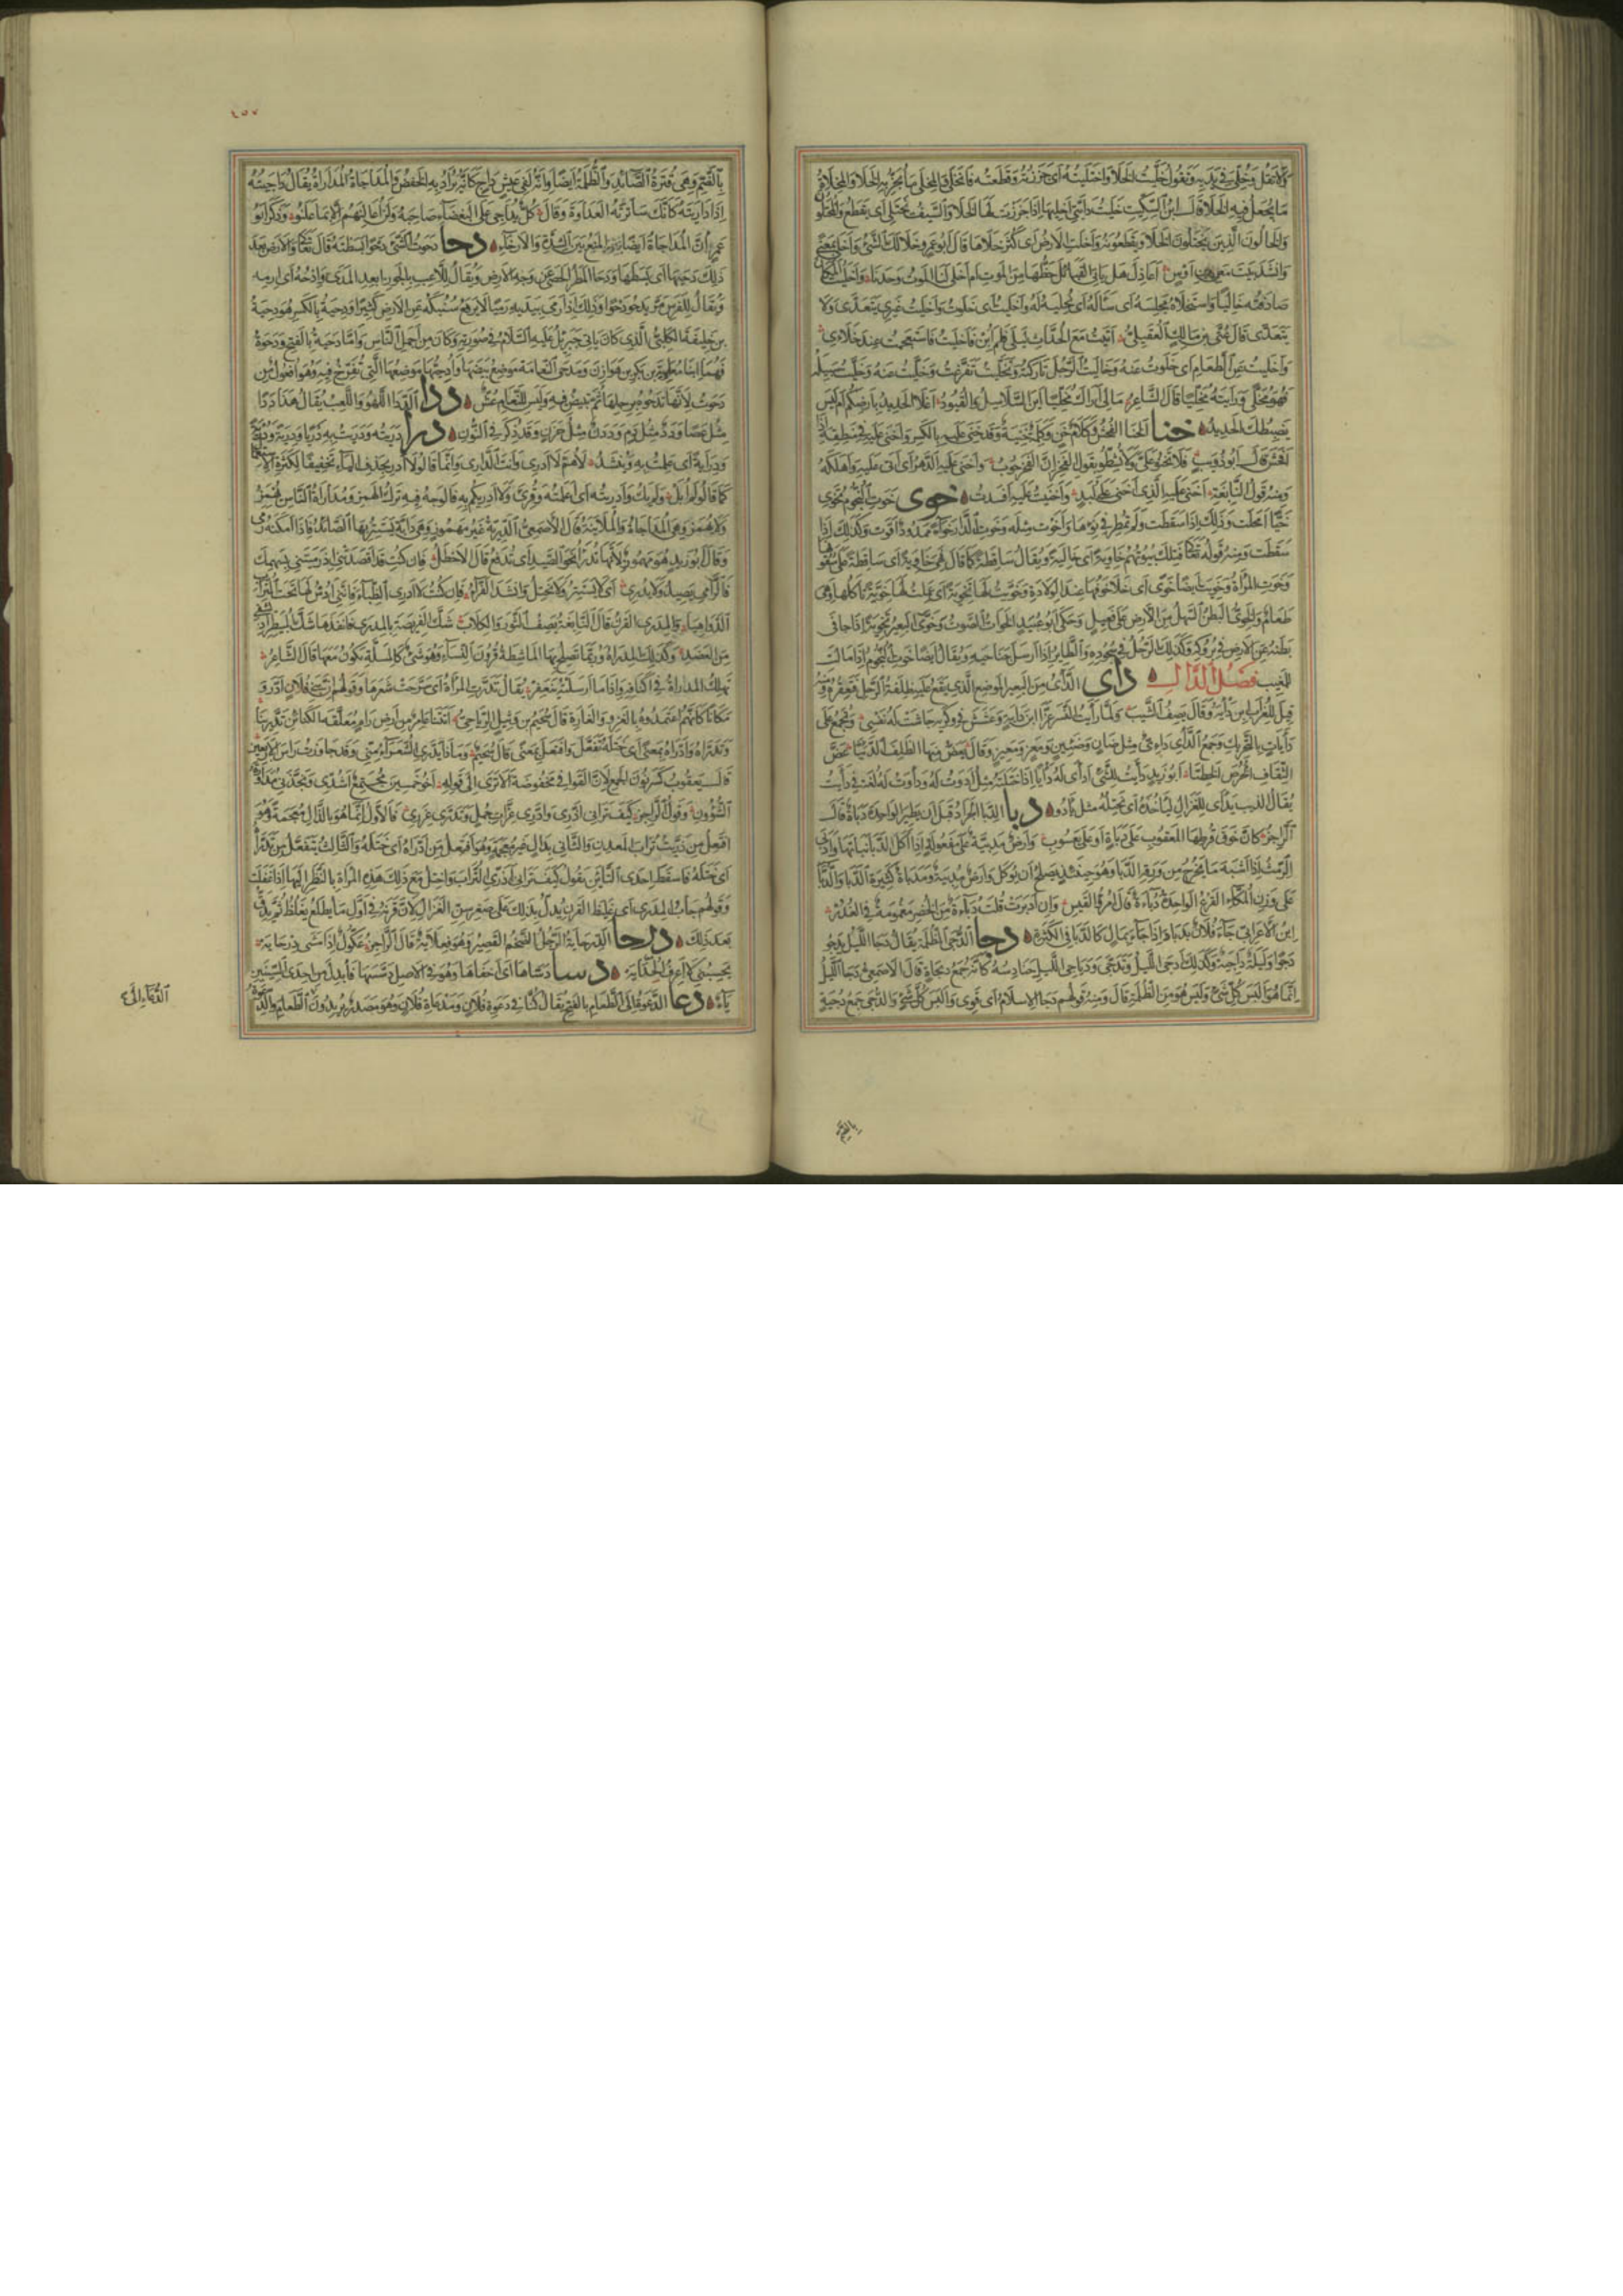 ولا تقل وتخلى في يديه وتقول خليت الخلا واختليته اى جززته وقطعته فانخلى والمخلى ما يجز به الخلا والمخلاة
ما يجعل فيه الخلا قال ابن السكيت خليت دابتى اخليها اذا جززت لها الخلا والسيف يختلى اى يقطع والمختلون
والخالون الذين يختلون الخلا ويقطعونه واخلت الارض اى كثر خلاها قال ابو عمرو خلا لك الشئ واخلى بمعنى
وانشد بيت معن بن اوس اعاذل هل ياتى القبائل حظها من الموت ام اخلى لنا الموت وحدنا واخليت المكان
صادفته خاليا واستخلاه مجلسه اى سأله اى يخليه له واخليت اى خلوت واخليت غيرى يتعدى ولا
يتعدى قال عتى بن مالك العقيلى اتيت مع الحداث ليلى فلم ابن فاخليت فاستعجمت عند خلاءى
واخليت عن الطعام اى خلوت عنه وخاليت الرجل تاركته وتخليت تفرغت وخليت عنه وخليت سبيله
فهو مخلى ورايته مخليا قال الشاعر مالى اراك مخليا اين السلاسل والقيود اغلا الحديد بارضكم ام ليس
يضبطك الحديد خنا الخنا الفحش وكلام خن وكلمة خنية وقد خنى عليه بالكسر واخنى عليه في منطقه اذا
افحش قال ابو ذؤيب فلا تخنوا على ولا تشطوا بقول الفخر ان الفخر حوب واخنى عليه الدهر اى اتى عليه واهلكه
ومنه قول النابغة اخنى عليها الذى اخنى على لبد واخنيت عليه افسدت خوى خوت النجوم تخوى
خيا امحلت وذلك اذا سقطت ولم تمطر في نوءها واخوت مثله وخوت الدار خواء ممدود اقوت وكذلك اذا
سقطت ومنه قوله تعالى فتلك بيوتهم خاوية اى خالية ويقال ساقطة كما قال فهى خاوية اى ساقطة على سقوفها
وخوت المراة وخويت ايضا خوى اى خلا جوفها عند الولادة وخويت لها تخوية اى عملت لها خوية تاكلها وهى
طعام والخوى البطن السهل من الارض على فعيل وحكى ابو عبيد الخوات الصوت وخوى البعير تخوية اذا جافى
بطنه عن الارض في بروكه وكذلك الرجل في سجوده والطاير اذا ارسل جناحيه ويقال ايضا خوت النجوم اذا مالت
للمغيب فصل الدال داى الداى من البعير الموضع الذى يقع عليه ظلفة الرحل فيعقره ومنه
قيل للغراب ابن داية وقال يصف الشيب ولما رايت النسر عز ابن داية وعشش في وكريه جاشت له نفسى ويجمع على
دايات بالتحريك وجمع الداى دءى مثل ضان وضئين ومعز ومعيز وقال يعض منها الظلف الدئيا عض
الثقاف الخرص الخطيا ابو زيد دايت للشئ اداى له دايا اذا ختلته مثل ادوت له ودأوت له لغة في دايت
يقال الذيب يداى للغزال لياخذه اى يختله مثل يادو دبا الدبا الجراد قبل ان يطير الواحدة دباة قال
الراجز كان خوق قرطها المعقوب على دباة او على يعسوب وارض مدبية على مفعولة اذا اكل الدبا نباتها وادبى
الرمث اذا اشبه ما يخرج من ورقه الدبا وهو حينئذ يصلح ان يوكل وارض مدبية ومدباة كثيرة الدبا والدباء
على وزن المكاء القرع الواحدة دباءة قال امرؤ القيس وان ادبرت قلت دباءة من الخضر مغموسة في الغدر
ابن الاعرابى جاء فلان بدبا دبا اذا جاء بمال كالدبا في الكثرة دجا الدجى الظلمة يقال دجا الليل يدجو
دجوا وليلة داجية وكذلك ادجى الليل وتدجى ودياجى الليل حنادسه كانه جمع ديجاة قال الاصمعى دجا الليل
انما هو البس كل شئ وليس هو من الظلمة قال ومنه قولهم دجا الاسلام اى قوى والبس كل شئ والدجى جمع دجية
بالضم
٤٥٧
بالضم وهى قترة الصائد والظلمة ايضا وانه لفى عيش داج كانه يراد به الخفض والمداجاة المداراة يقال داجيته
اذا داريته كانك ساترته العداوة وقال كل يداجى على البغضاء صاحبه ولن اعالنهم الا بما علنوا وذكر ابو
عمرو ان المداجاة ايضا المنع بين الشدة والارخاء دحا دحوت الشئ دحوا بسطته قال تعالى والارض بعد
ذلك دحيها اى بسطها ودحا المطر الحصى عن وجه الارض ويقال للاعب بالجوز ابعد المدى وادحه اى ارمه
ويقال للفرس مر يدحو دحوا وذلك اذا رمى بيديه رميا لا يرفع سنبكه عن الارض كثيرا ودحية بالكسر هو دحية
بن خليفة الكلبى الذى كان ياتى جبريل عليه السلام في صورته وكان من اجمل الناس واما دحية بالفتح ودحوة
فهما ابنا معوية بن بكر بن هوازن ومدحى النعامة موضع بيضها وادحيها موضعها الذى تفرخ فيه وهو افعول من
دحوت لانها تدحوه برجلها ثم تبيض فيه وليس للنعام عش ددا الددا اللهو واللعب يقال هذا ددا
مثل عصا ودد مثل دم وددن مثل حزن وقد ذكر في النون درا دريته ودريت به دريا ودرية ودرية
ودراية اى علمت به وينشد لاهم لا ادرى وانت الدارى وانما قالوا لا ادر بحذف الياء تخفيفا لكثرة الاستعمال
كما قالوا لم ابل ولم يك وادريته اى اعلمته وقرئ ولا ادريكم به فالوجه فيه ترك الهمز ومداراة الناس يهمز
ولا يهمز وهى المداجاة والملاينة قال الاصمعى الدرية غير مهموز وهى دابة يستتر بها الصائد فاذا امكنه رمى
وقال ابو زيد هو مهموز لانها تدرأ نحو الصيد اى تدفع قال الاخطل فان كنت قد اقصدتنى اذ رميتنى بسهمك
فالرامى يصيد ولا يدرى اى لا يستتر ولا يختل وانشد الفراء فان كنت لا ادرى الظباء فاننى ادس لها تحت التراب
الدواهيا والمدرى القرن قال النابغة يصف الثور والكلاب شك الفريصة بالمدرى فانفذها شك المبيطر اذ يشفى
من العضد وكذلك المدراة وربما تصلح بها الماشطة قرون النساء وهو شئ كالمسلة يكون معها قال الشاعر
تهلك المدراة في اكنافه واذا ما ارسلته ينعفر يقال تدرت المراة اى سرحت شعرها وقولهم ان بنى فلان ادروا
مكانا كانهم اعتمدوه بالغزو والغارة قال سحيم بن وثيل الرياحى اتتنا عامر من ارض رام معلقة الكنائن تدرينا
وتدراه وادراه بمعنى اى ختله تفعل وافتعل بمعنى قال سحيم وماذا يدرى الشعراء منى وقد جاوزت راس الاربعين
قال يعقوب كسر نون الجمع لان القوافى مخفوضة الا ترى الى قوله اخو خمسين مجتمع اشدى ونجذنى مداورة
الشؤون وقول الراجز كيف ترانى اذرى وادرى غرات جمل وتدرى غررى فالاول انما هو بالذال معجمة وهو
افتعل من ذريت تراب المعدن والثانى بدال غير معجمة وهو افتعل من ادراه اى ختله والثالث يتفعل من تدراه
اى ختله فاسقط احدى التائين يقول كيف ترانى اذرى التراب واختل مع ذلك هذه المراة بالنظر اليها اذا غفلت
وقولهم جاب المدرى اى غليظ القرن يدل بذلك على صغر سن الغزال لان قرنه في اول ما يطلع يغلظ ثم يدق
بعد ذلك درحا الدرحاية الرجل الضخم القصير وهو فعلاية قال الراجز عكوك اذا مشى درحايه
يحسبنى لا اعرف الحدايه دسا دساها اى اخفاها وهو في الاصل دسسها فابدل من احدى السينين
ياء دعا الدعوة الى الطعام بالفتح يقال كنا في دعوة فلان ومدعاة فلان وهو مصدر يريدون الطعام والدعوة
الدعاء الى